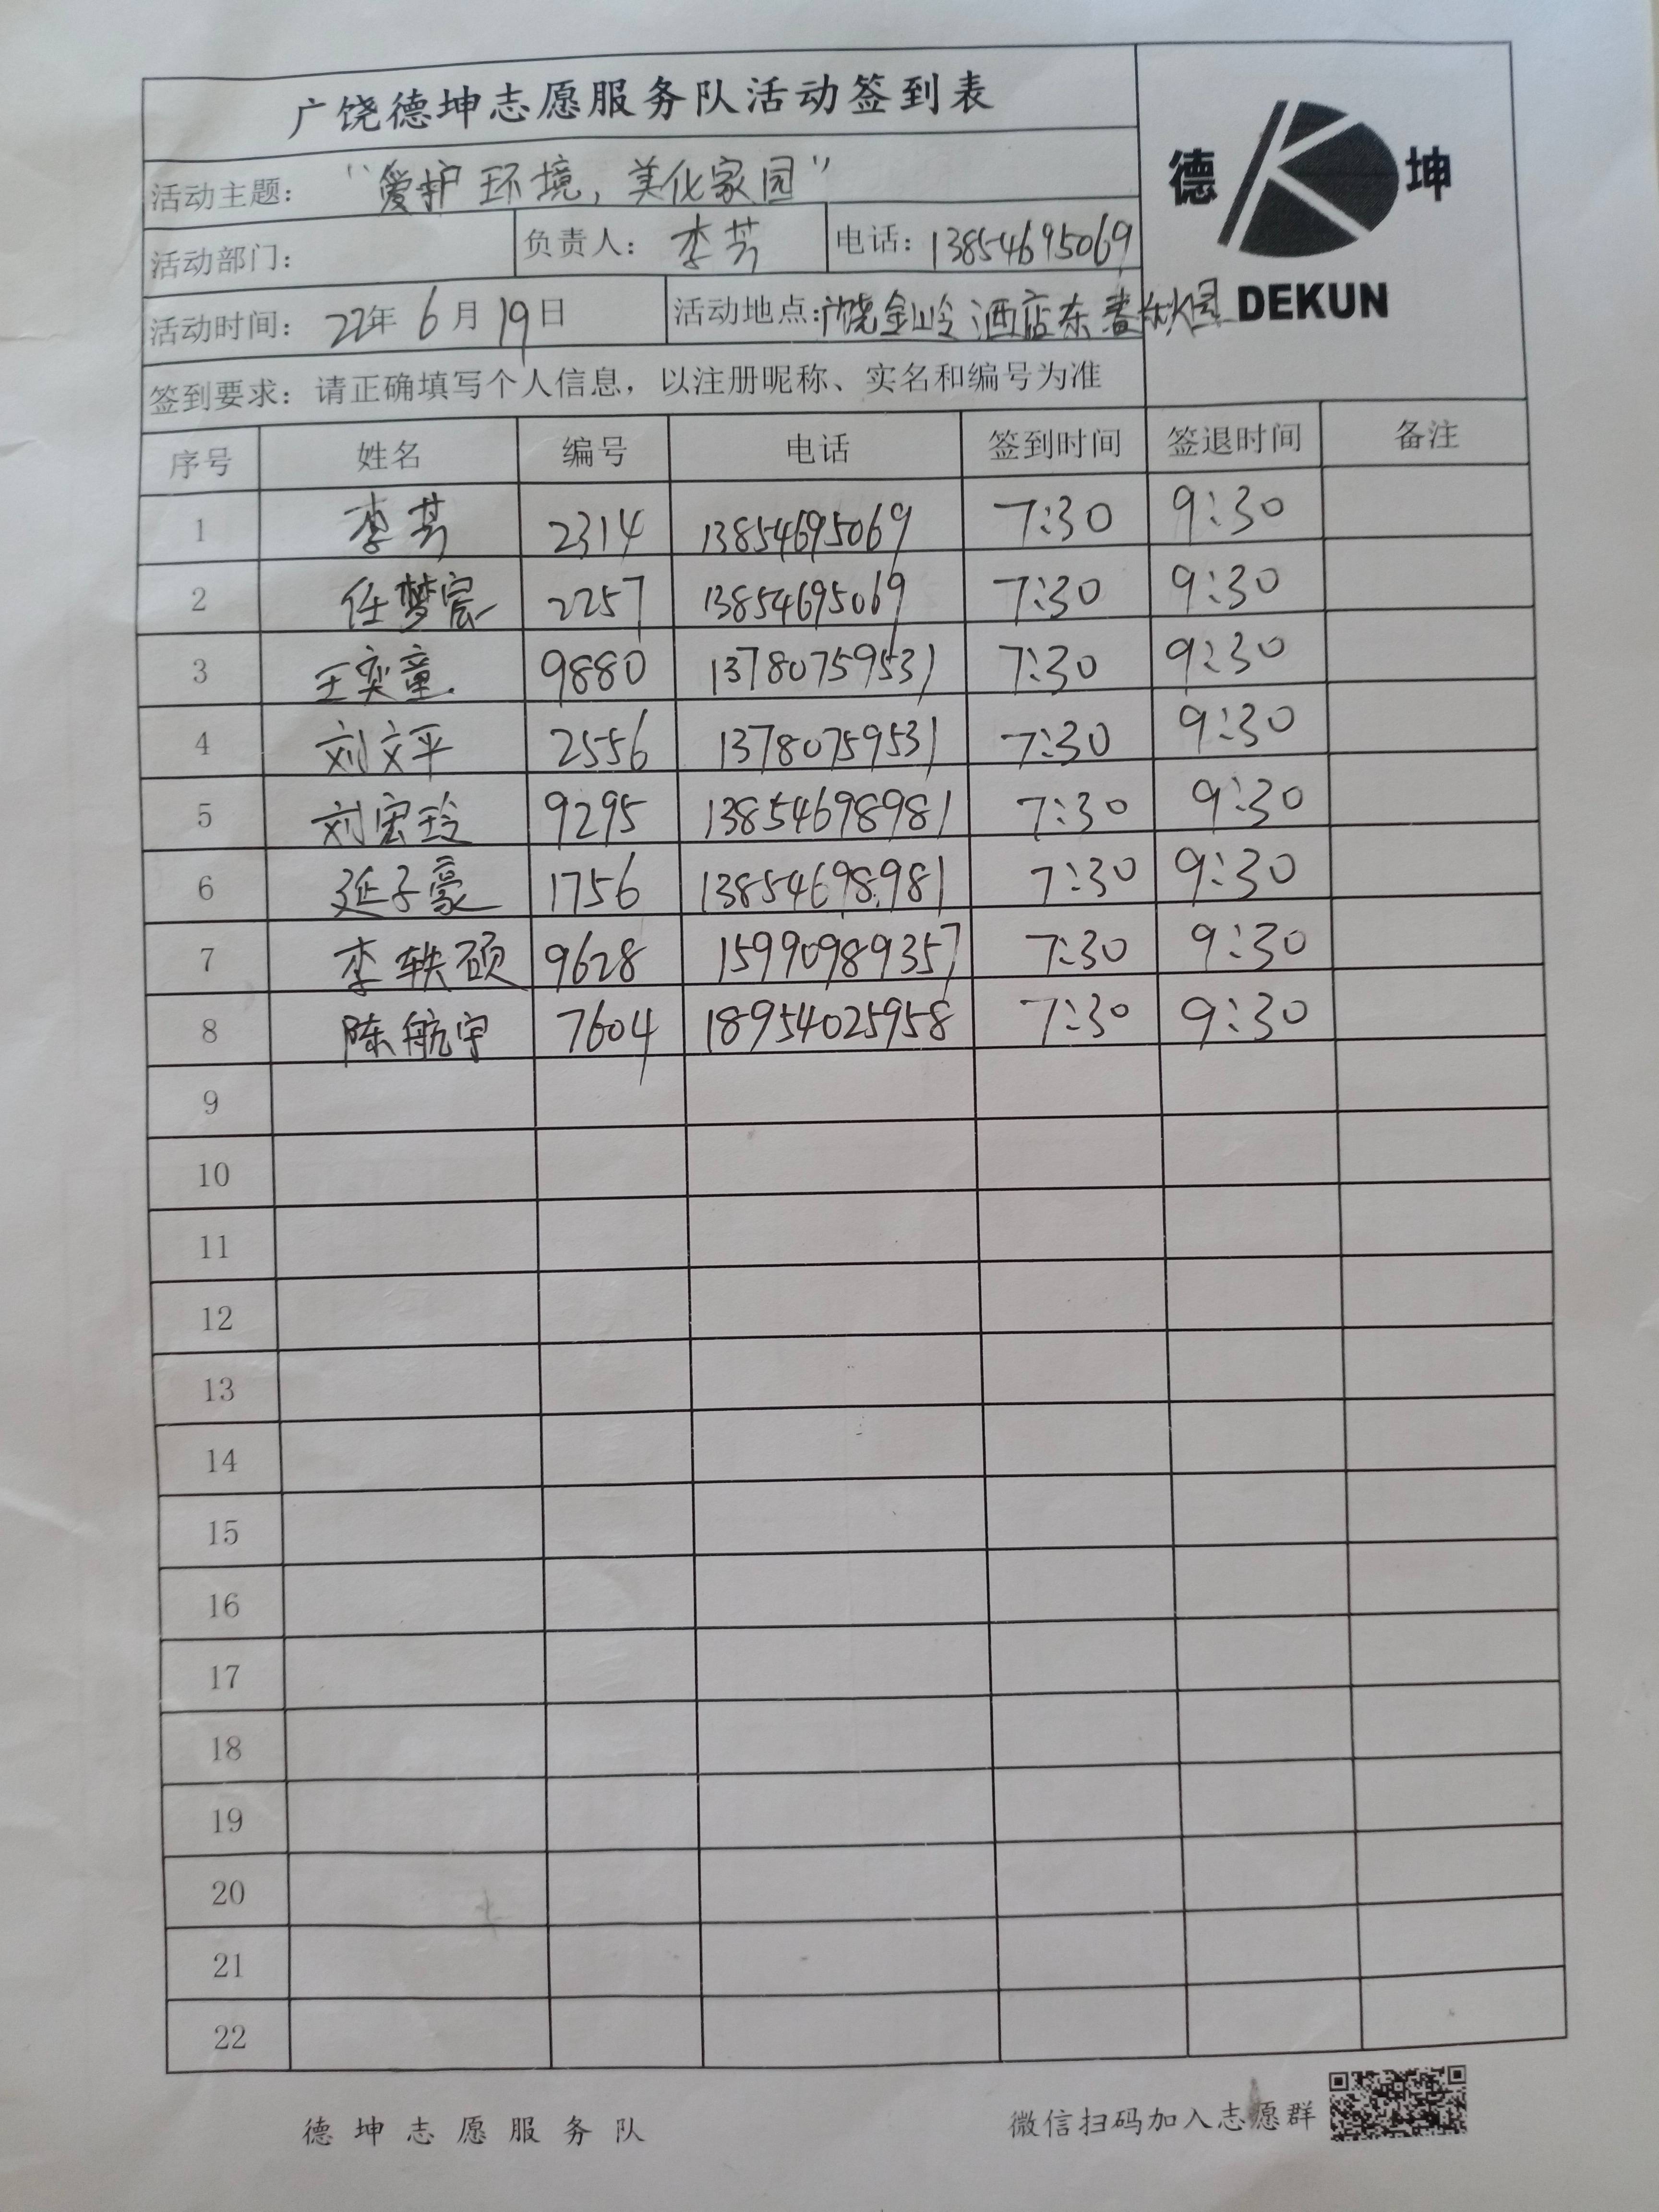 广饶德坤志愿服务队活动签到表
德 坤
DEKUN
活动主题： “爱护环境，美化家园”
活动部门： 负责人： 李芳 电话：13854695069
活动时间： 22年 6月 19日 活动地点：广饶金岭酒店东春秋园
签到要求：请正确填写个人信息，以注册昵称、实名和编号为准
序号 姓名 编号 电话 签到时间 签退时间 备注
1 李芳 2314 13854695069 7:30 9:30
2 任梦宸 2257 13854695069 7:30 9:30
3 王奕童 9880 13780759531 7:30 9:30
4 刘文平 2556 13780759531 7:30 9:30
5 刘宏玲 9295 13854698981 7:30 9:30
6 延子豪 1756 13854698981 7:30 9:30
7 李轶硕 9628 15990989357 7:30 9:30
8 陈航宇 7604 18954025958 7:30 9:30
9
10
11
12
13
14
15
16
17
18
19
20
21
22
德坤志愿服务队 微信扫码加入志愿群